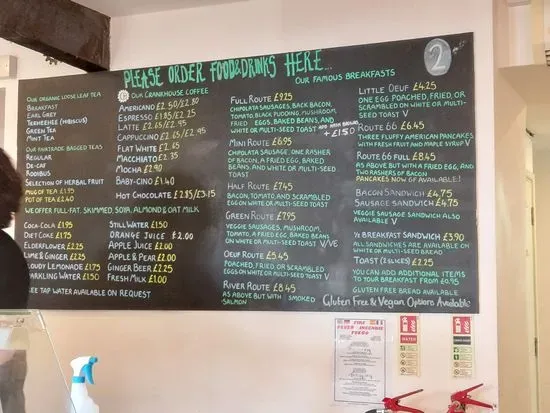 PLEASE ORDER FOOD&DRINKS HERE...
2
OUR ORGANIC LOOSE LEAF TEA
BREAKFAST
EARL GREY
TEEHEEHEE (HIBISCUS)
GREEN TEA
MINT TEA
OUR FAIRTRADE BAGGED TEAS
REGULAR
DE-CAF
ROOIBUS
SELECTION OF HERBAL FRUIT
MUG OF TEA £1.95
POT OF TEA £2.40
OUR CRANKHOUSE COFFEE
AMERICANO £2.50/£2.80
ESPRESSO £1.85/£2.25
LATTE £2.65/£2.95
CAPPUCCINO £2.65/£2.95
FLAT WHITE £2.65
MACCHIATO £2.35
MOCHA £2.90
BABY-CINO £1.40
HOT CHOCOLATE £2.85/£3.15
WE OFFER FULL-FAT, SKIMMED, SOYA, ALMOND & OAT MILK
COCA-COLA £1.95
DIET COKE £1.75
ELDERFLOWER £2.25
LIME & GINGER £2.25
CLOUDY LEMONADE £1.75
SPARKLING WATER £1.50
STILL WATER £1.50
ORANGE JUICE £2.00
APPLE JUICE £2.00
APPLE & PEAR £2.00
GINGER BEER £2.25
FRESH MILK £1.00
TAP WATER AVAILABLE ON REQUEST
OUR FAMOUS BREAKFASTS
FULL ROUTE £9.25
CHIPOLATA SAUSAGES, BACK BACON,
TOMATO, BLACK PUDDING, MUSHROOM,
FRIED EGGS, BAKED BEANS, AND
WHITE OR MULTI-SEED TOAST ADD HASH BROWNS + £1.50
MINI ROUTE £6.95
CHIPOLATA SAUSAGE, ONE RASHER
OF BACON, A FRIED EGG, BAKED
BEANS, AND WHITE OR MULTI-SEED
TOAST
HALF ROUTE £7.45
BACON, TOMATO, AND SCRAMBLED
EGG ON WHITE OR MULTI-SEED TOAST
GREEN ROUTE £7.95
VEGGIE SAUSAGES, MUSHROOM,
TOMATO, A FRIED EGG, BAKED BEANS
ON WHITE OR MULTI-SEED TOAST V/VE
OEUF ROUTE £5.45
POACHED, FRIED, OR SCRAMBLED
EGGS ON WHITE OR MULTI-SEED TOAST V
RIVER ROUTE £8.45
AS ABOVE BUT WITH SMOKED
SALMON
LITTLE OEUF £4.25
ONE EGG POACHED, FRIED, OR
SCRAMBLED ON WHITE OR MULTI-
SEED TOAST V
ROUTE 66 £6.45
THREE FLUFFY AMERICAN PANCAKES
WITH FRESH FRUIT AND MAPLE SYRUP V
ROUTE 66 FULL £8.45
AS ABOVE BUT WITH A FRIED EGG, AND
TWO RASHERS OF BACON
PANCAKES NOW AVAILABLE!
BACON SANDWICH £4.75
SAUSAGE SANDWICH £4.75
VEGGIE SAUSAGE SANDWICH ALSO
AVAILABLE V
½ BREAKFAST SANDWICH £3.90
ALL SANDWICHES ARE AVAILABLE ON
WHITE OR MULTI-SEED BREAD
TOAST (2 SLICES) £2.25
YOU CAN ADD ADDITIONAL ITEMS
TO YOUR BREAKFAST FROM £0.95
GLUTEN FREE BREAD AVAILABLE
GLUTEN FREE & VEGAN OPTIONS AVAILABLE
FIRE
WATER